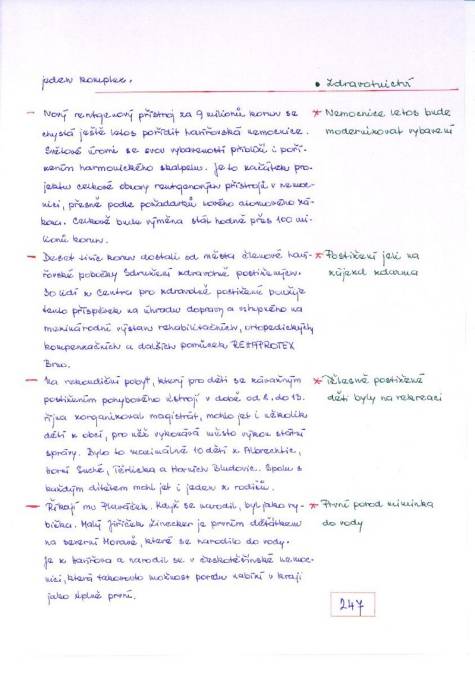 jeden komplex.
• Zdravotnictví
– Nový rentgenový přístroj za 9 milionů korun se
chystá ještě letos pořídit havířovská nemocnice.
Světové úrovni se svou vybaveností přiblíží i poří-
zením harmonického skalpelu. Je to začátek pro-
jektu celkové obnovy rentgenových přístrojů v nemoc-
nici, přesně podle požadavků nového atomového zá-
kona. Celkově bude výměna stát hodně přes 100 mi-
lionů korun.
* Nemocnice letos bude
modernizovat vybavení
– Deset tisíc korun dostali od města členové haví-
řovské pobočky Sdružení zdravotně postižených.
30 lidí z Centra pro zdravotně postižené použije
tento příspěvek na úhradu dopravy a vstupného na
mezinárodní výstavu rehabilitačních, ortopedických,
kompenzačních a dalších pomůcek REHAPROTEX
Brno.
* Postižení jeli na
zájezd zdarma
– Na rekondiční pobyt, který pro děti se závažným
postižením pohybového ústrojí v době od 6. do 13.
října zorganizoval magistrát, mohlo jet i několik
dětí z obcí, pro něž vykonává město výkon státní
správy. Bylo to maximálně 10 dětí z Albrechtic,
Horní Suché, Těrlicka a Horních Bludovic. Spolu s
každým dítětem mohl jet i jeden z rodičů.
* Tělesně postižené
děti byly na rekreaci
– Říkají mu Plaváček. Když se narodil, byl jako ry-
bička. Malý Jiříček Linecker je prvním děťátkem
na severní Moravě, které se narodilo do vody.
Je z Havířova a narodil se v českotěšínské nemoc-
nici, která takovouto možnost porodu nabízí v kraji
jako úplně první.
* První porod miminka
do vody
247